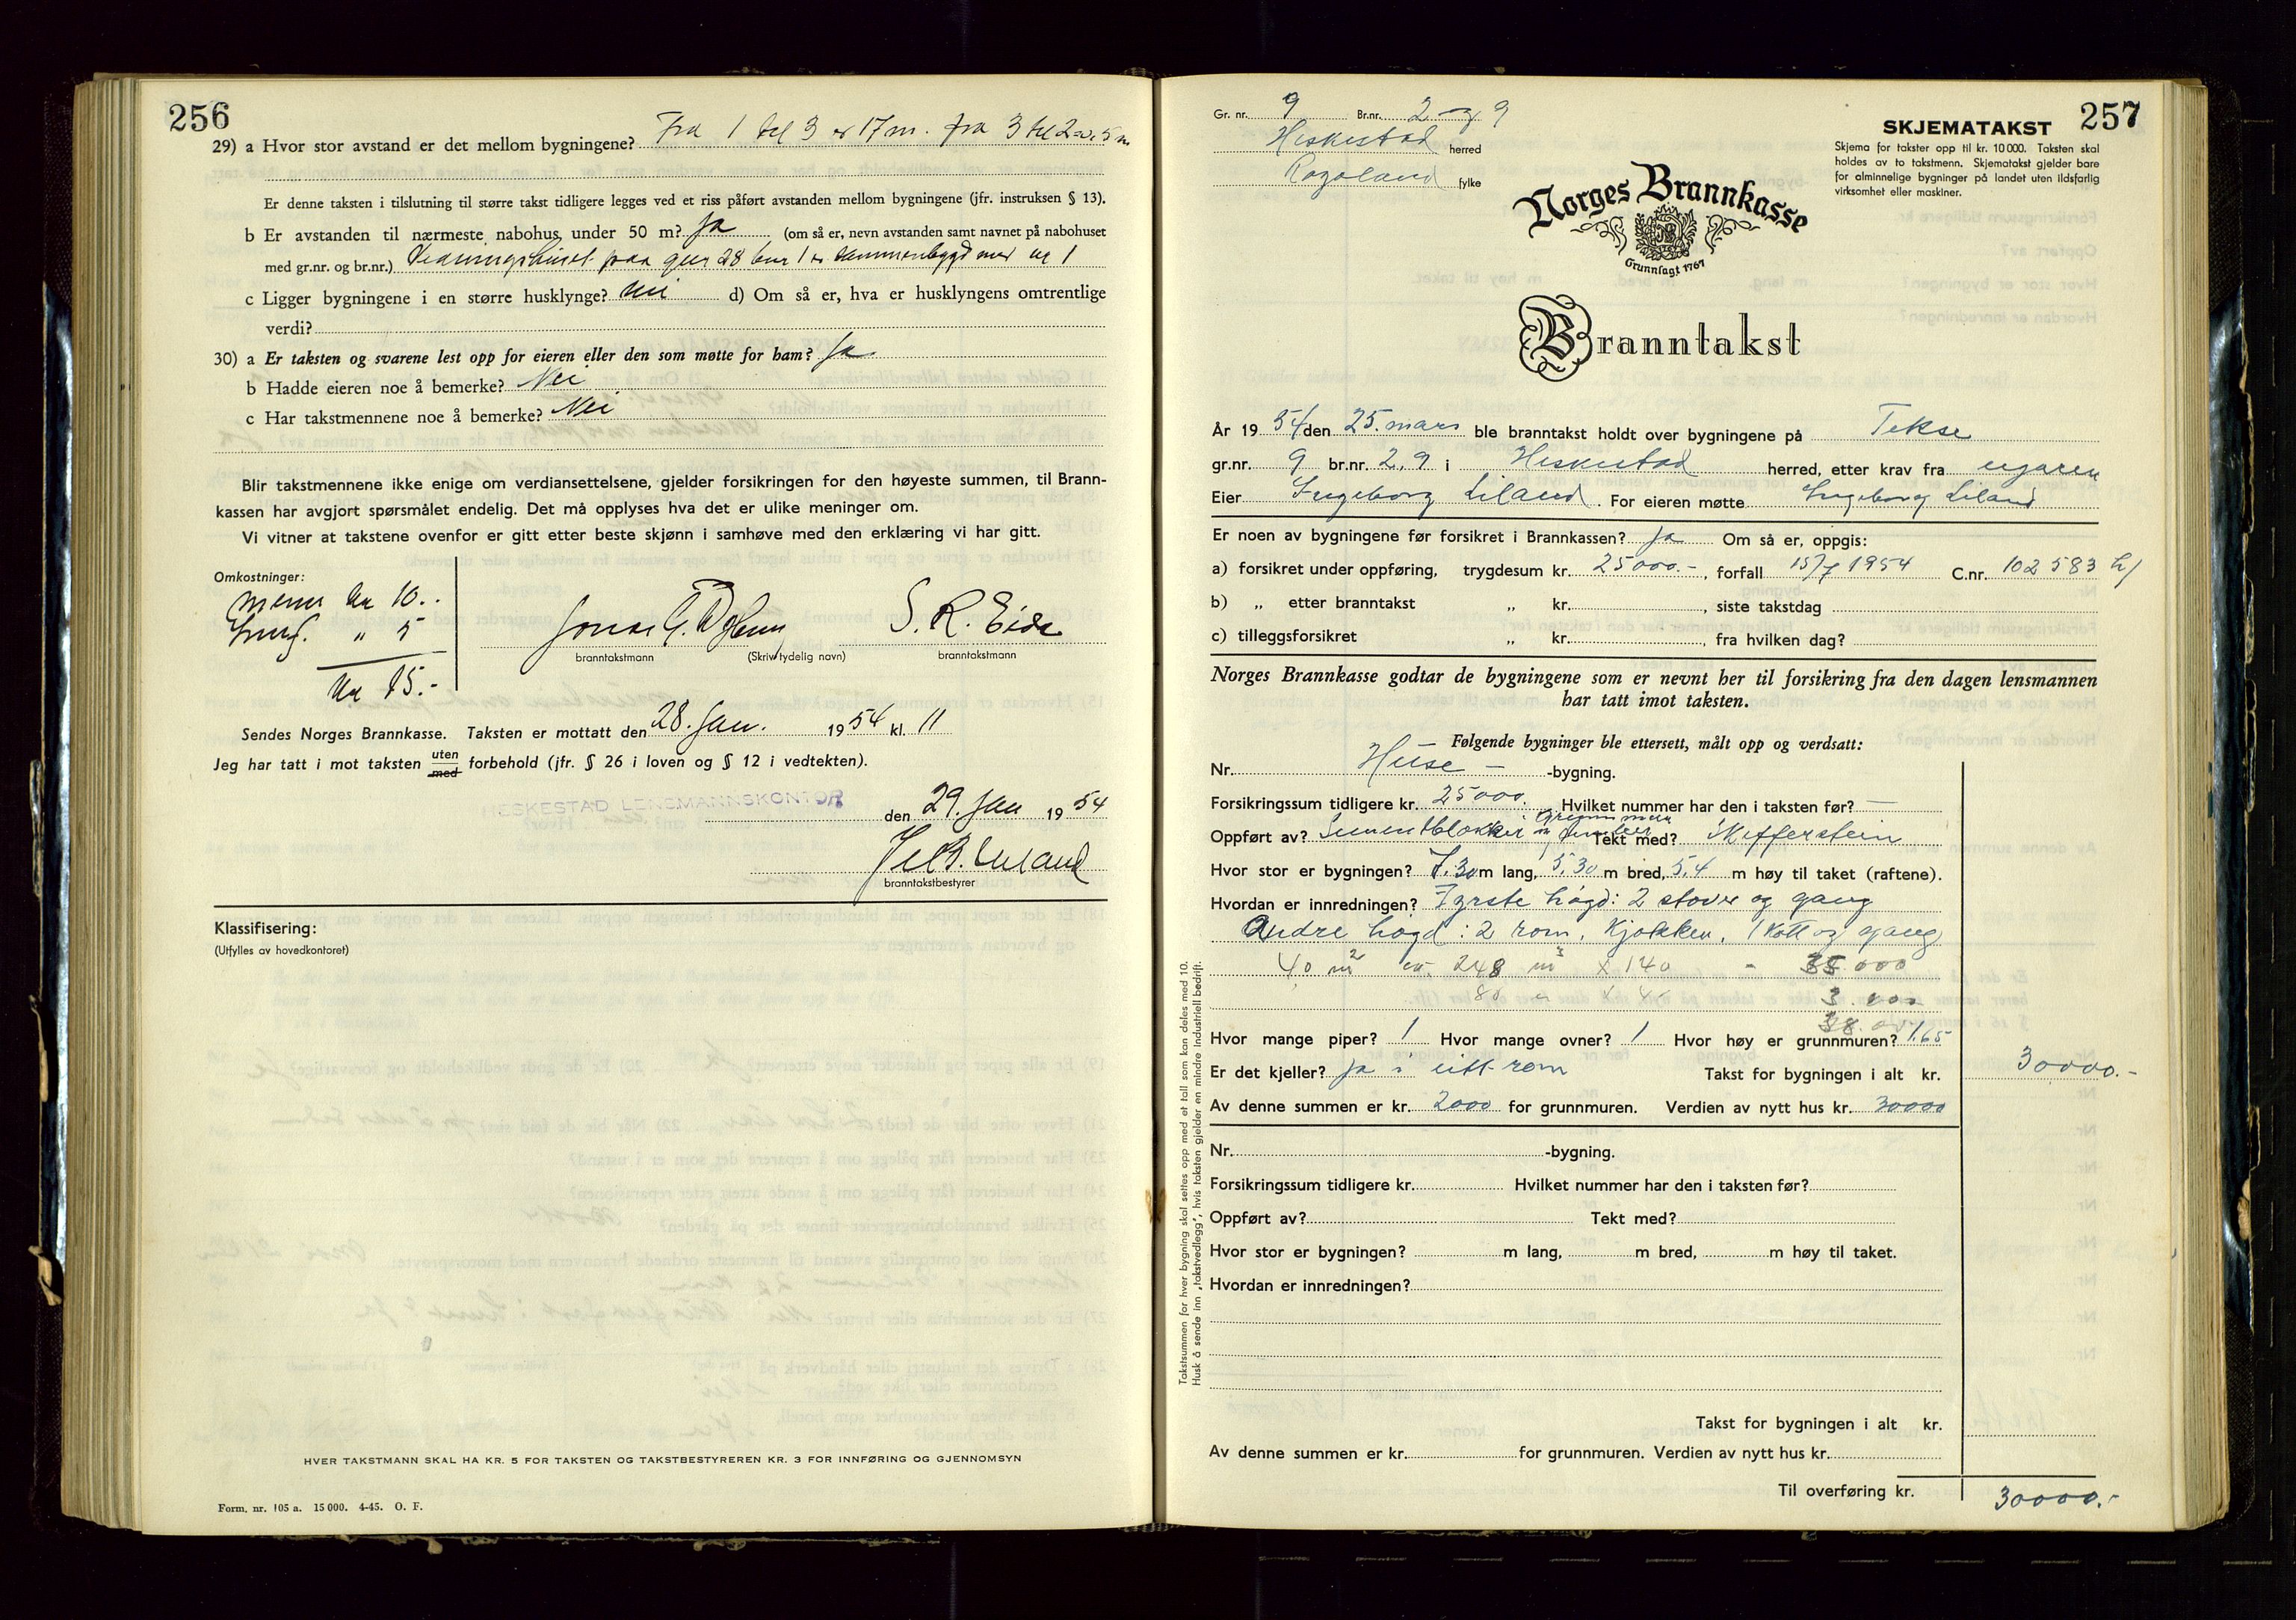 256
29) a Hvor stor avstand er det mellom bygningene? Fra 1 til 3 er 17 m. fra 3 til 2 er 5 m
Er denne taksten i tilslutning til større takst tidligere legges ved et riss påført avstanden mellom bygningene (jfr. instruksen § 13).
b Er avstanden til nærmeste nabohus under 50 m? Ja (om så er, nevn avstanden samt navnet på nabohuset
med gr.nr. og br.nr.) paa gnr 28 bnr 1 er sammenbygd med nr 1
c Ligger bygningene i en større husklynge? Nei d) Om så er, hva er husklyngens omtrentlige
verdi?
30) a Er taksten og svarene lest opp for eieren eller den som møtte for ham? Ja
b Hadde eieren noe å bemerke? Nei
c Har takstmennene noe å bemerke? Nei
Blir takstmennene ikke enige om verdiansettelsene, gjelder forsikringen for den høyeste summen, til Brann-
kassen har avgjort spørsmålet endelig. Det må opplyses hva det er ulike meninger om.
Vi vitner at takstene ovenfor er gitt etter beste skjønn i samhøve med den erklæring vi har gitt.
Omkostninger:
menn kr 10..
" 5
kr 15.-
Jonas S. R. Eide
branntakstmann (Skriv tydelig navn) branntakstmann
Sendes Norges Brannkasse. Taksten er mottatt den 28. Jan. 1954 kl. 11
Jeg har tatt i mot taksten uten med forbehold (jfr. § 26 i loven og § 12 i vedtekten).
HESKESTAD LENSMANNSKONTOR den 29. Jan 1954
branntakstbestyrer
Klassifisering:
(Utfylles av hovedkontoret)
HVER TAKSTMANN SKAL HA KR. 5 FOR TAKSTEN OG TAKSTBESTYREREN KR. 3 FOR INNFØRING OG GJENNOMSYN
Form. nr. 105 a. 15 000. 4-45. O. F.
257
Gr. nr. 9 Br.nr. 2 og 9
Heskestad herred
Rogaland fylke
SKJEMATAKST
Skjema for takster opp til kr. 10 000. Taksten skal
holdes av to takstmenn. Skjematakst gjelder bare
for alminnelige bygninger på landet uten ildsfarlig
virksomhet eller maskiner.
Norges Brannkasse
Grunnlagt 1767
Branntakst
År 1954 den 25. mars ble branntakst holdt over bygningene på Tekse
gr.nr. 9 br.nr. 2, 9 i Heskestad herred, etter krav fra eigaren
Eier Ingeborg Liland. For eieren møtte Ingeborg Liland
Er noen av bygningene før forsikret i Brannkassen? Ja Om så er, oppgis:
a) forsikret under oppføring, trygdesum kr. 25000.-, forfall 15/7 1954 C.nr. 102583 h/
b) „ etter branntakst „ kr. , siste takstdag
c) tilleggsforsikret „ kr. , fra hvilken dag?
Norges Brannkasse godtar de bygningene som er nevnt her til forsikring fra den dagen lensmannen
har tatt imot taksten.
Følgende bygninger ble ettersett, målt opp og verdsatt:
Nr. Huse - -bygning.
Forsikringssum tidligere kr. 25000. Hvilket nummer har den i taksten før? —
Oppført av? Sementblokker i Grunnmur og Tekt med? Skifferstein
Hvor stor er bygningen? 7.30 m lang, 5,30 m bred, 5,4 m høy til taket (raftene).
Hvordan er innredningen? Fyrste høgd: 2 stover og gang
Andre høgd: 2 rom, Kjøkken, 1 Kott og gang
40 m² 248 m³ x 140 - 35.000
80
38.000
Hvor mange piper? 1 Hvor mange ovner? 1 Hvor høy er grunnmuren? 1,65
Er det kjeller? Ja i eitt rom Takst for bygningen i alt kr. 30000.-
Av denne summen er kr. 2000 for grunnmuren. Verdien av nytt hus kr. 30000
Nr. -bygning.
Forsikringssum tidligere kr. Hvilket nummer har den i taksten før?
Oppført av? Tekt med?
Hvor stor er bygningen? m lang, m bred, m høy til taket.
Hvordan er innredningen?
Takst for bygningen i alt kr.
Av denne summen er kr. for grunnmuren. Verdien av nytt hus kr.
Til overføring kr. 30000.-
Takstsummen for hver bygning skal settes opp med et tall som kan deles med 10.
Husk å sende inn „takstvedlegg", hvis taksten gjelder en mindre industriell bedrift.